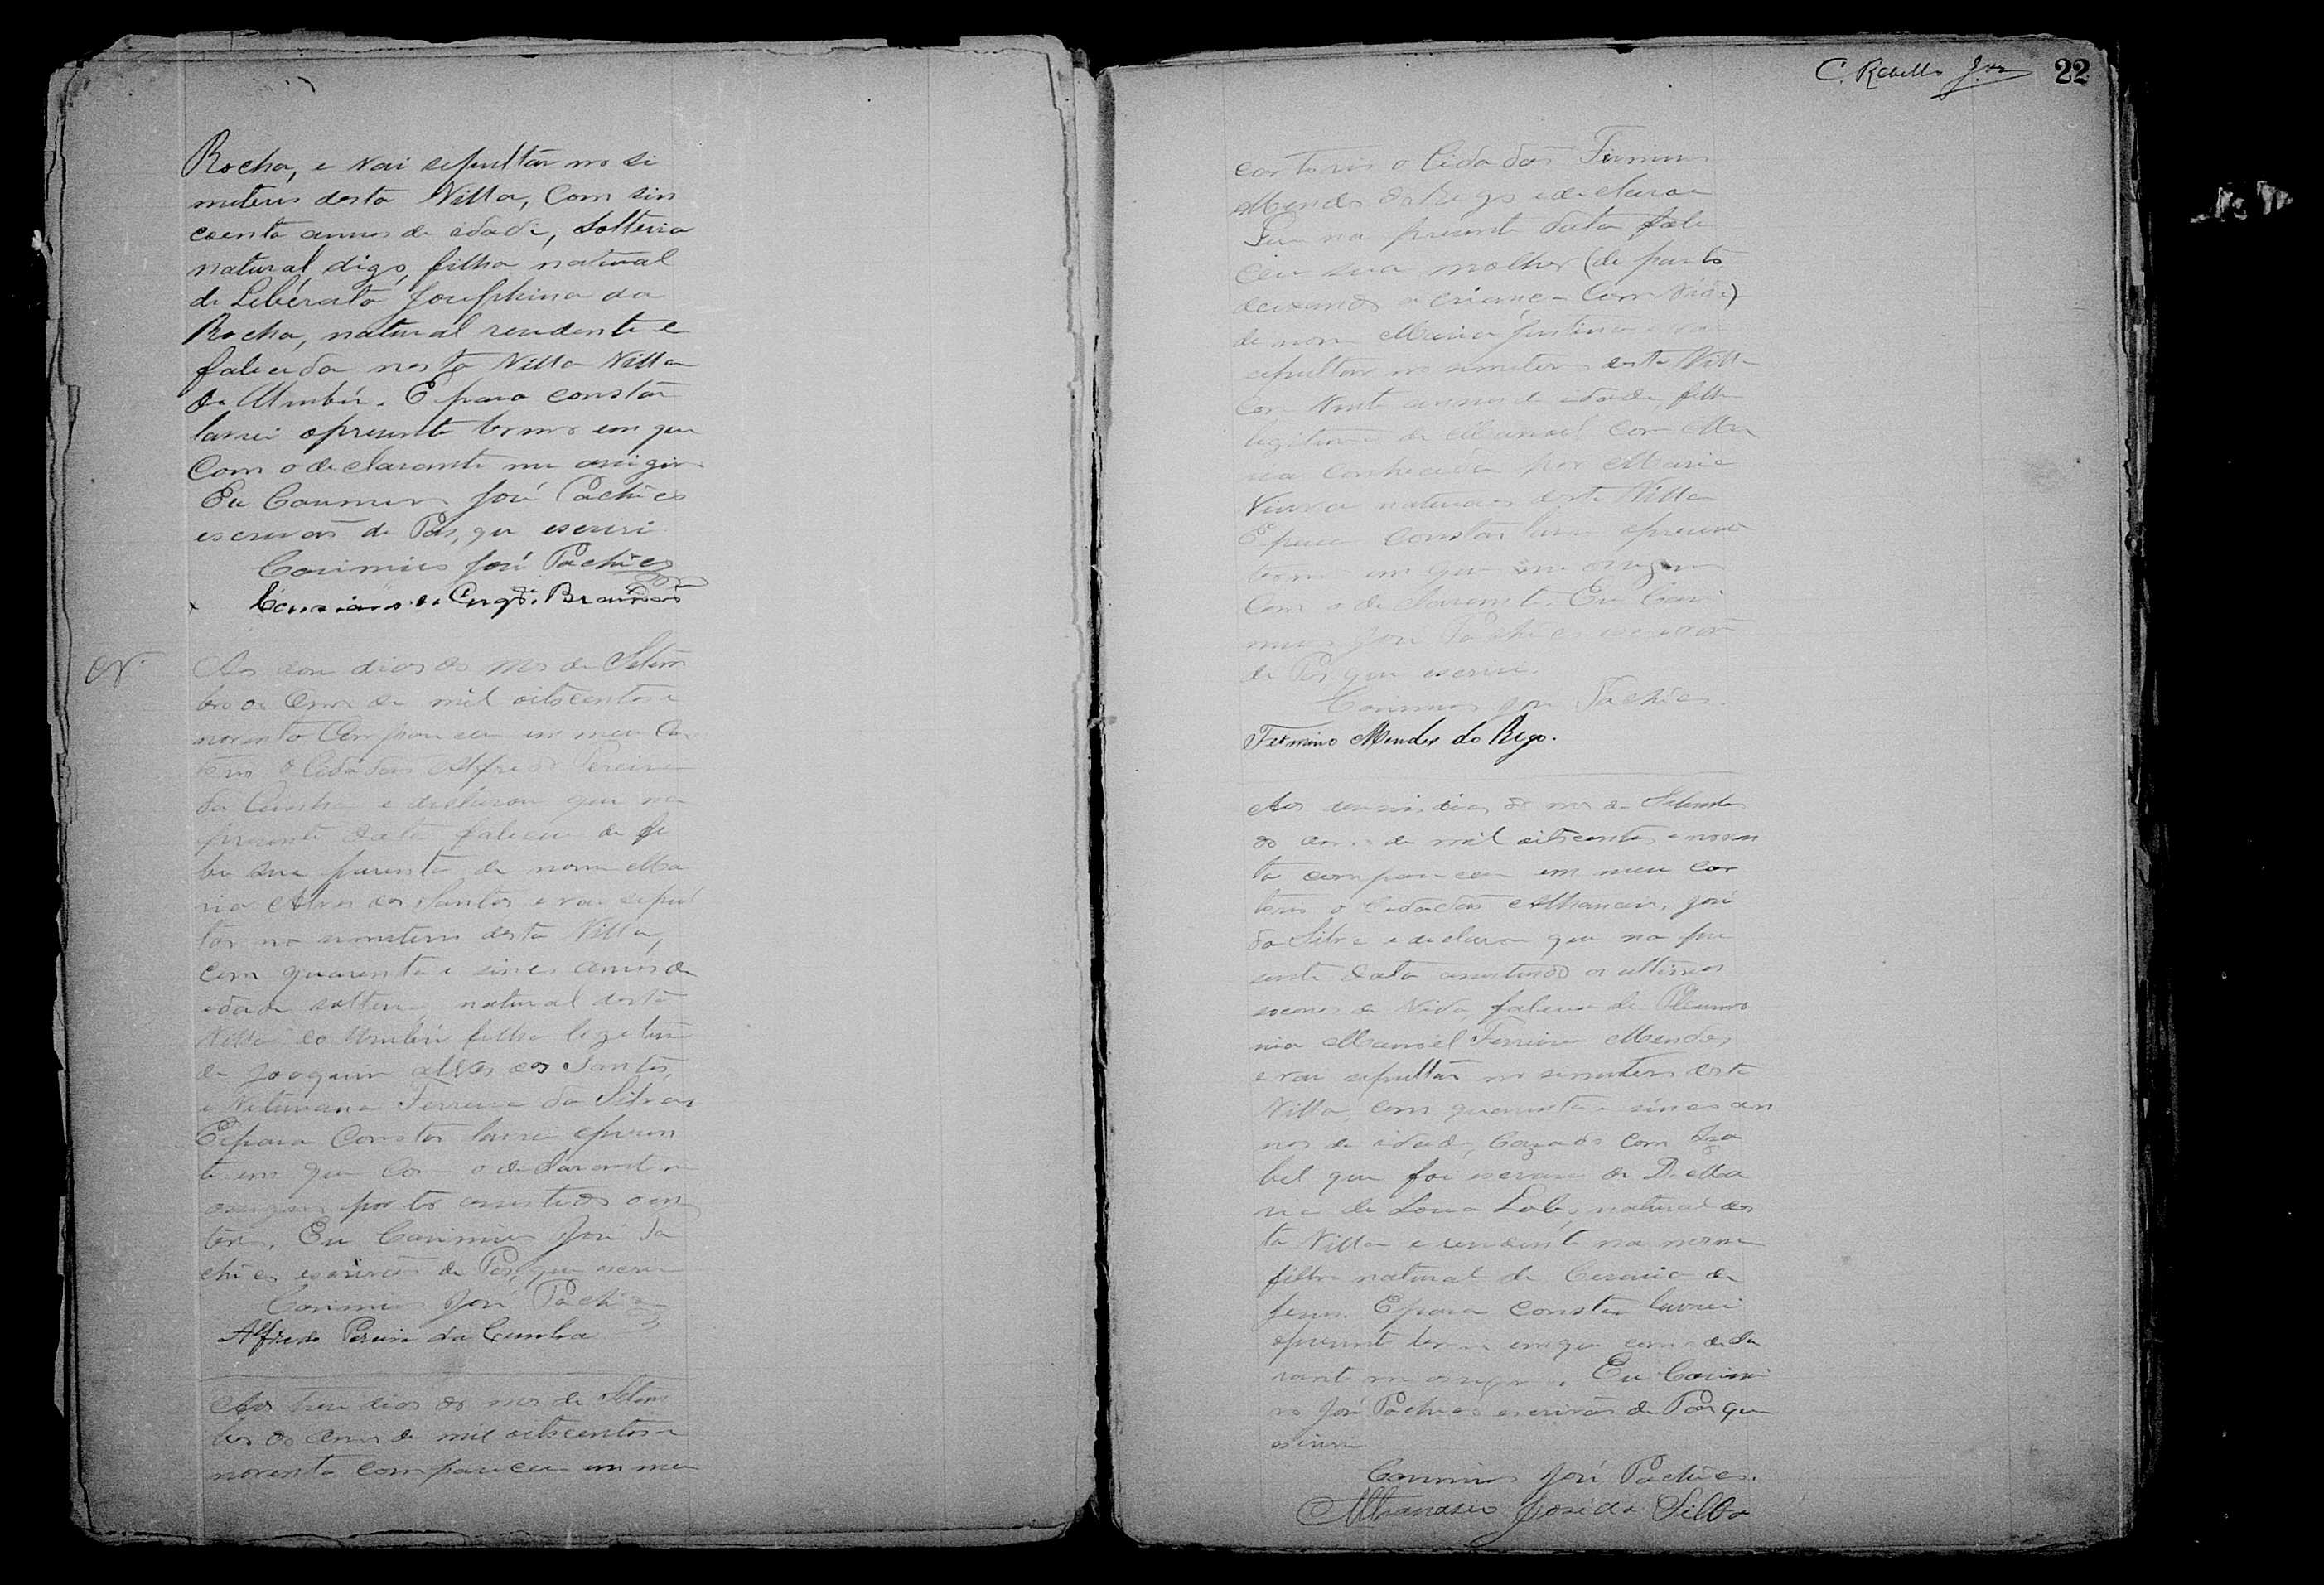 Rocha, e vai sepultar no si
miterio desta Villa, Com sin
coenta annos de idade, Solteria
natural digo, filha natural
de Liberata Josephina da
Rocha, natural residente e
falecida nesta Villa Villa
do Umbú. E para constar
lavrei o presente termo em que
Com o declarante me asigno
Eu Casimiro José Pachêco
escrivão de Pas, que escrivi
Casimiro José Pachêco
Brandão
N.
Aos dous dias do mes de Setem
bro do Anno de mil oitocentos e
noventa Compareceu em meu Car
torio o Cidadão Alfredo Pereira
da Cunha e declarou que na
presente data faleceu de fe
bre sua parenta de nome Ma
ria Alves dos Santos e vai sepul
tar no simiterio desta Villa,
com quarenta e sinco annos de
idade solteira, natural desta
Villa do filha legitima
de Joaquim Alves dos Santos,
e Ferreira da Silva
E para Constar lavrei o presen
te em que Com o declarante
asigno por ter
Eu Casimiro José Pa
chêco escrivão de Pas, que escrivi
Casimiro José Pachêco
Alfredo Pereira da Cunha
Aos tres dias do mes de Setem
bro do Anno de mil oitocentos e
noventa compareceu em meu
C. Rebello
22
cartorio o Cidadão Firmino
Mendes do Rego e declarou
que na presente data fale
ceu sua molher (de parto
deixando a criança Com vida)
de nome Maria Justina e vai
sepultar no simiterio desta Villa
Com vinte annos de idade, filha
legitima de Manoel Com Ma
ria conhecida por Maria
Viuva naturaes desta Villa
E para Constar lavrei o presente
termo em que me asigno
Com o declarante. Eu Casi
miro José Pachêco escrivão
de Pas que escrivi.
Casimiro José Pachêco.
Firmino Mendes do Rego.
Aos dias do mes de Setembro
do anno de mil oitocentos e noven
ta compareceu em meu car
torio o Cidadão Athanasio José
da Silva e declarou que na pre
sente data os ultimos
de Vida faleceu de
nia Manoel Ferreira Mendes
e vai sepultar no simiterio desta
Villa, com quarenta e sinco an
nos de idade, Cazado com Iza
bel que foi escrava de D. Ma
ria de natural des
ta Villa e residente na mesma
filho natural de
Jesus. E para Constar lavrei
o presente termo em que com o decla
rante me asigno. Eu Casimi
ro José Pachêco escrivão de Pas que
escrivi
Casimiro José Pachêco.
Athanasio José da Silva